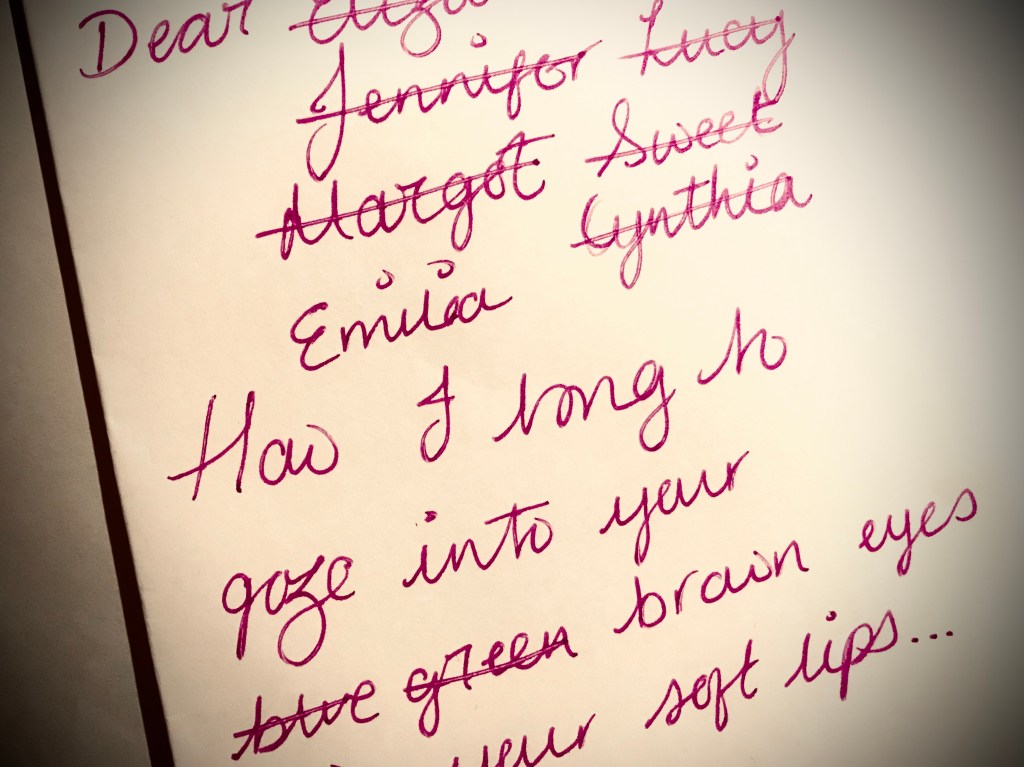 Dear Eliza
Jennifer Lucy
Margot Sweet
Emilia Cynthia
How I long to
gaze into your
blue green brown eyes
your soft lips...